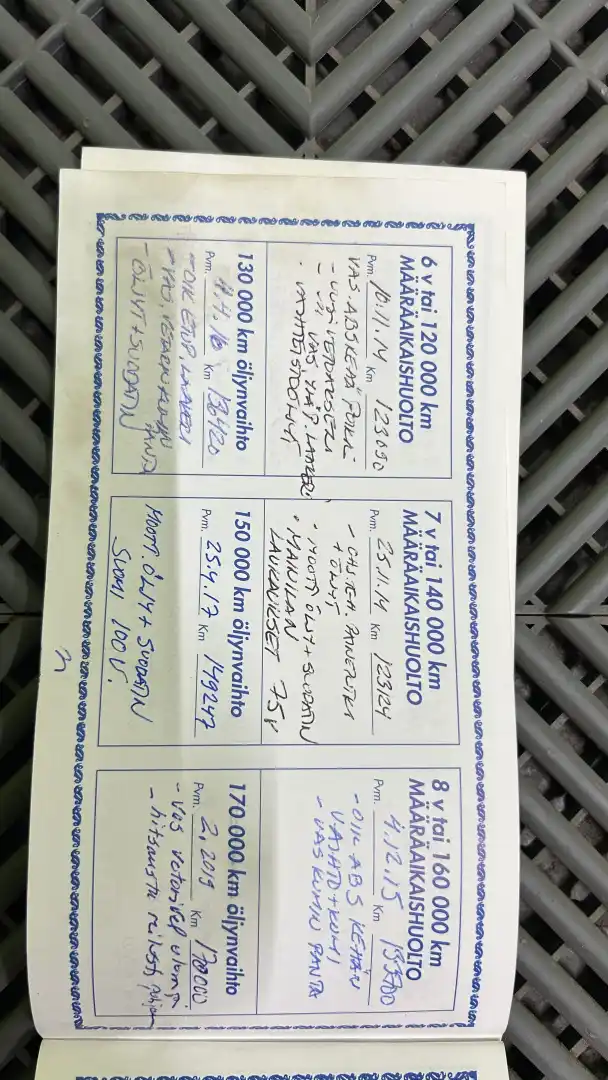 6 v tai 120 000 km
MÄÄRÄAIKAISHUOLTO
Pvm. 10.11.14 Km 123090
VAS ABS KEHÄ POIKKI
- UUSI VETOAKSELI
- VAS YLÄP. LAAKERI
VAIHTEISTOÖLJYT
130 000 km öljynvaihto
Pvm. 11.4.16 Km 136420
- OIK ETUP. LAAKERI
- VAS PANTA
- ÖLJYT + SUODATIN
7 v tai 140 000 km
MÄÄRÄAIKAISHUOLTO
Pvm. 25.11.14 Km 123124
+ ÖLJYT
• MOOTT. ÖLJYT + SUODATIN
• MAINILAN
LAUKAUKSET 75V
150 000 km öljynvaihto
Pvm. 25.4.17 Km 149247
MOOTT. ÖLJY + SUODATIN
SUOMI 100V.
8 v tai 160 000 km
MÄÄRÄAIKAISHUOLTO
Pvm. 4.12.15 Km 133500
- OIK ABS KEHÄN
VAIHTO + KUMI
- VAS KUMIN PANTA
170 000 km öljynvaihto
Pvm. 2.2019 Km 170000
- vas vetonivel ulompi
- hitsausta